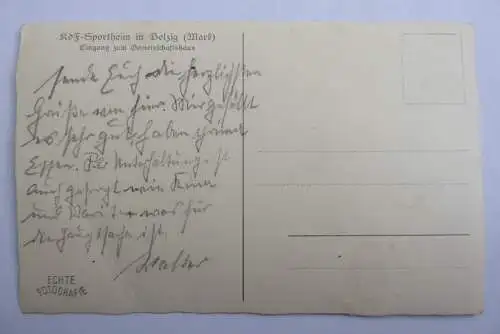 KdF-Sportheim in Belzig (Mark)
Eingang zum Gemeinschaftshaus
sende Euch die herzlichsten
Grüße von hier. Mir gefällt
es sehr gut, haben
Essen. Für Unterhaltung ist
auch gesorgt
und was für
die Hauptsache ist.
Walter
ECHTE
FOTOGRAFIE